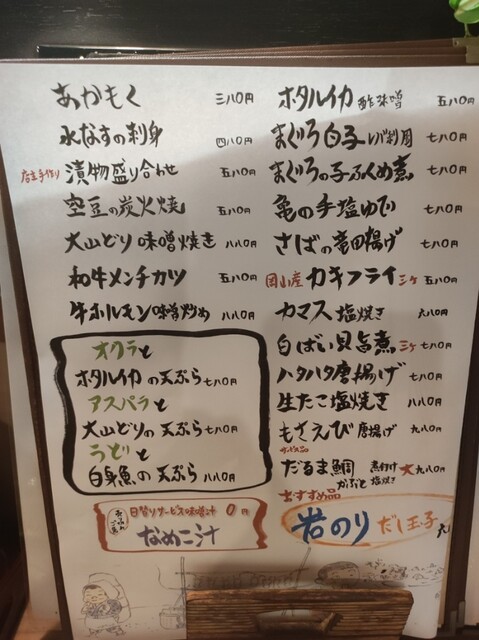 あかもく 三八〇円
水なすの刺身 四八〇円
店主手作り 漬物盛り合わせ 五八〇円
空豆の炭火焼 五八〇円
大山どり味噌焼き 八八〇円
和牛メンチカツ 五八〇円
牛ホルモン味噌炒め 八八〇円
オクラと
ホタルイカの天ぷら 七八〇円
アスパラと
大山どりの天ぷら 七八〇円
うどと
白身魚の天ぷら 八八〇円
日替りサービス味噌汁 0円
なめこ汁
ホタルイカ 酢味噌 五八〇円
まぐろ白子 七八〇円
まぐろの子ふくめ煮 七八〇円
亀の手塩ゆで 七八〇円
さばの竜田揚げ 七八〇円
岡山産 カキフライ 三ヶ 五八〇円
カマス 塩焼き 六八〇円
白ばい貝旨煮 三ヶ 七八〇円
ハタハタ唐揚げ 七八〇円
生たこ塩焼き 八八〇円
もさえび 唐揚げ 九八〇円
サービス品
だるま鯛 かぶと 煮付け 塩焼き 大 九八〇円
おすすめ品
岩のり だし玉子